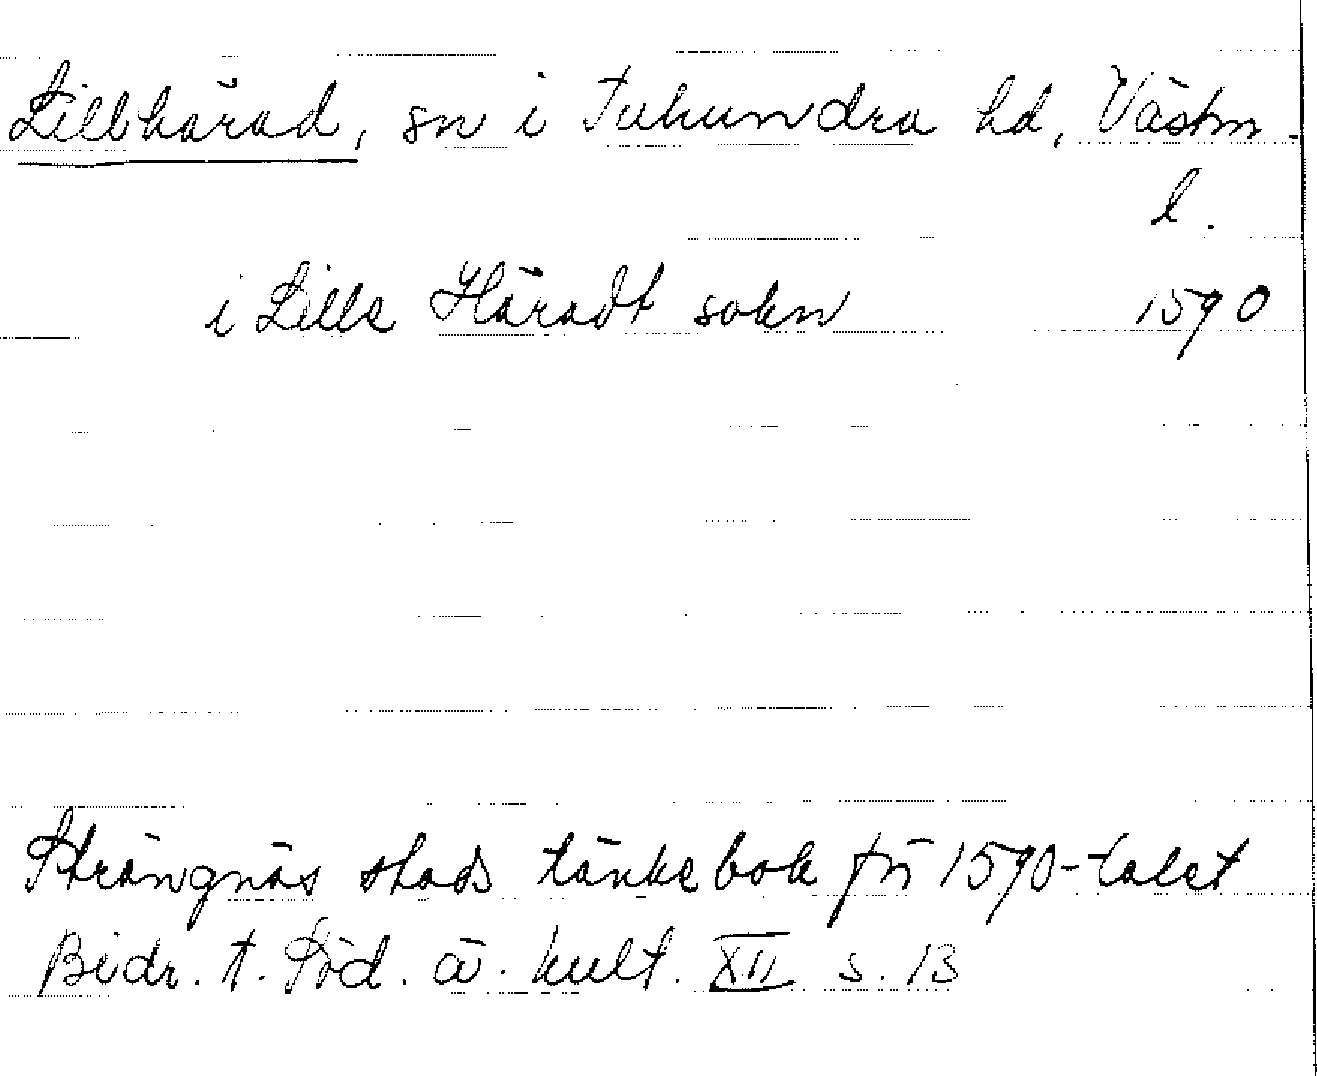 Lillhärad, sn i Tuhundra hd, Västm.
l.
i Lille Häradt sokn 1590
Strängnäs stads tänkebok från 1590-talet
Bidr. t. Söd. ä. kult. XII s. 13